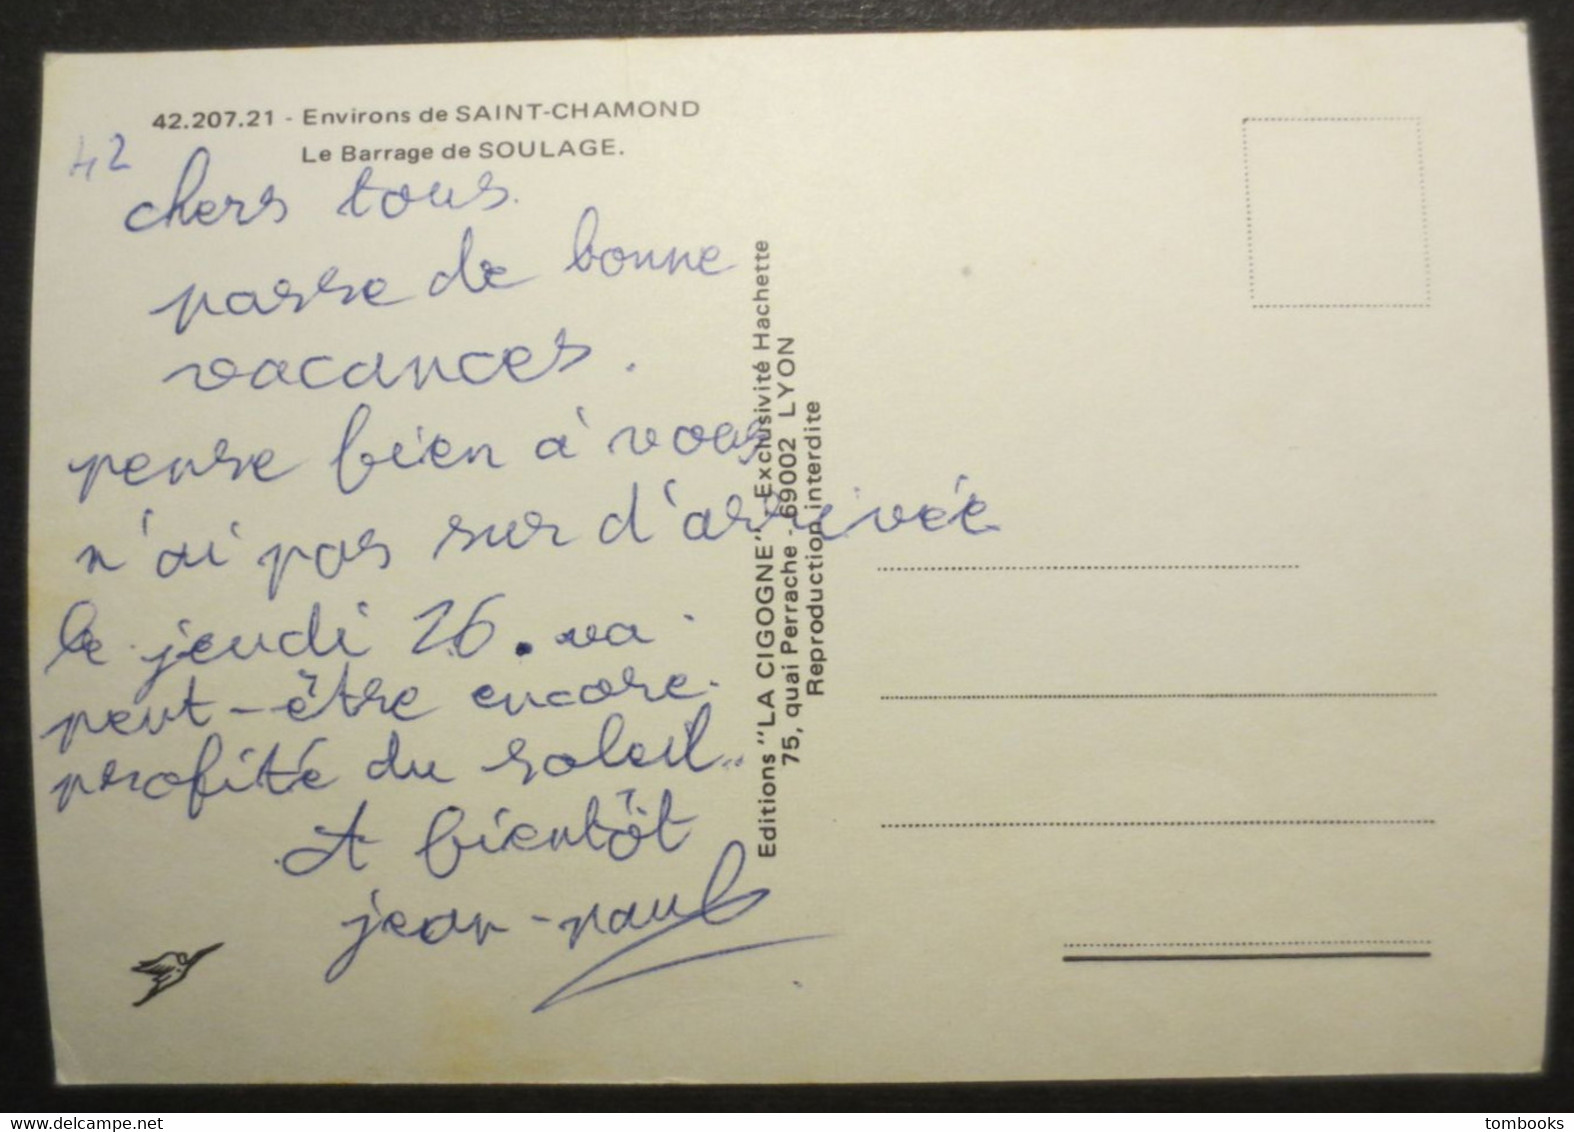 42.207.21 - Environs de SAINT-CHAMOND
Le Barrage de SOULAGE.
42
chers tous.
passe de bonne
vacances.
pense bien à vous
n'ai pas sur d'arrivée
le jeudi 26. va
peut-être encore.
profité du soleil..
A bientôt
jean-paul
Editions "LA CIGOGNE" - Exclusivité Hachette
75, quai Perrache - 69002 LYON
Reproduction interdite
tombooks